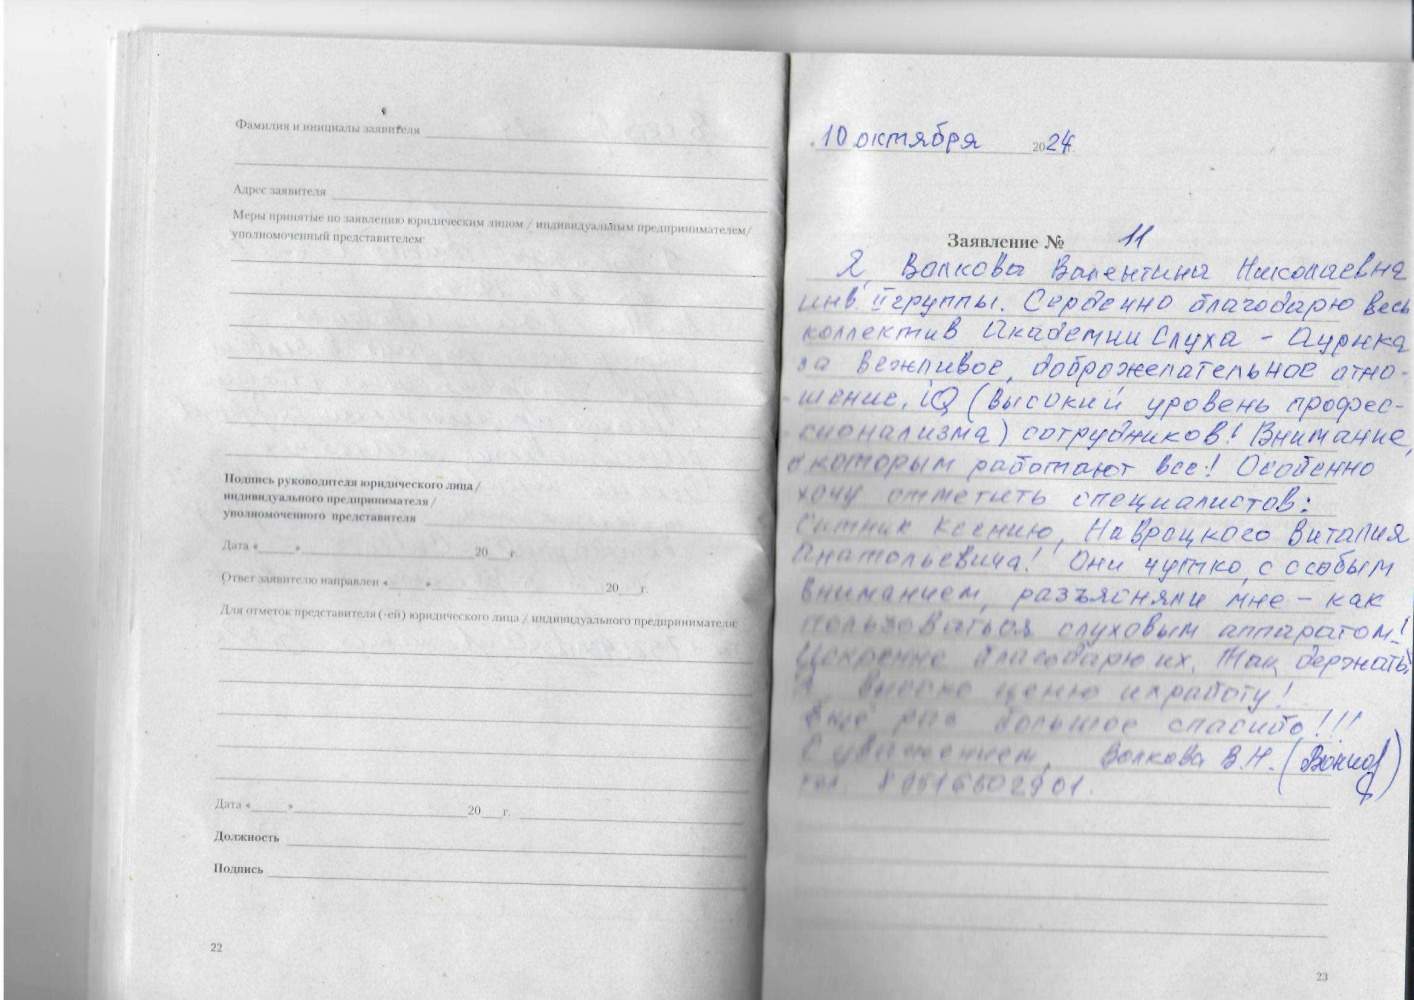 Фамилия и инициалы заявителя
Адрес заявителя
Меры принятые по заявлению юридическим лицом / индивидуальным предпринимателем/
уполномоченный представителем:
Подпись руководителя юридического лица /
индивидуального предпринимателя /
уполномоченного представителя
Дата « » 20 г.
Ответ заявителю направлен « » 20 г.
Для отметок представителя (-ей) юридического лица / индивидуального предпринимателя:
Дата « » 20 г.
Должность
Подпись
22
10 октября 2024
Заявление № 11
Я, Волкова Валентина Николаевна
инв. II группы. Сердечно благодарю весь
коллектив Академии Слуха - Аурика
за вежливое, доброжелательное отно-
шение, iQ (высокий уровень профес-
сионализма) сотрудников! Внимание,
с которым работают все! Особенно
хочу отметить специалистов:
Ситник Ксению, Навроцкого Виталия
Анатольевича! Они чутко, с особым
вниманием, разъясняли мне - как
пользоваться слуховым аппаратом!
Искренне благодарю их. Так держать!
Я высоко ценю их работу!
Ещё раз большое спасибо!!!
С уважением, Волкова В.Н.
тел. 89616602901.
23